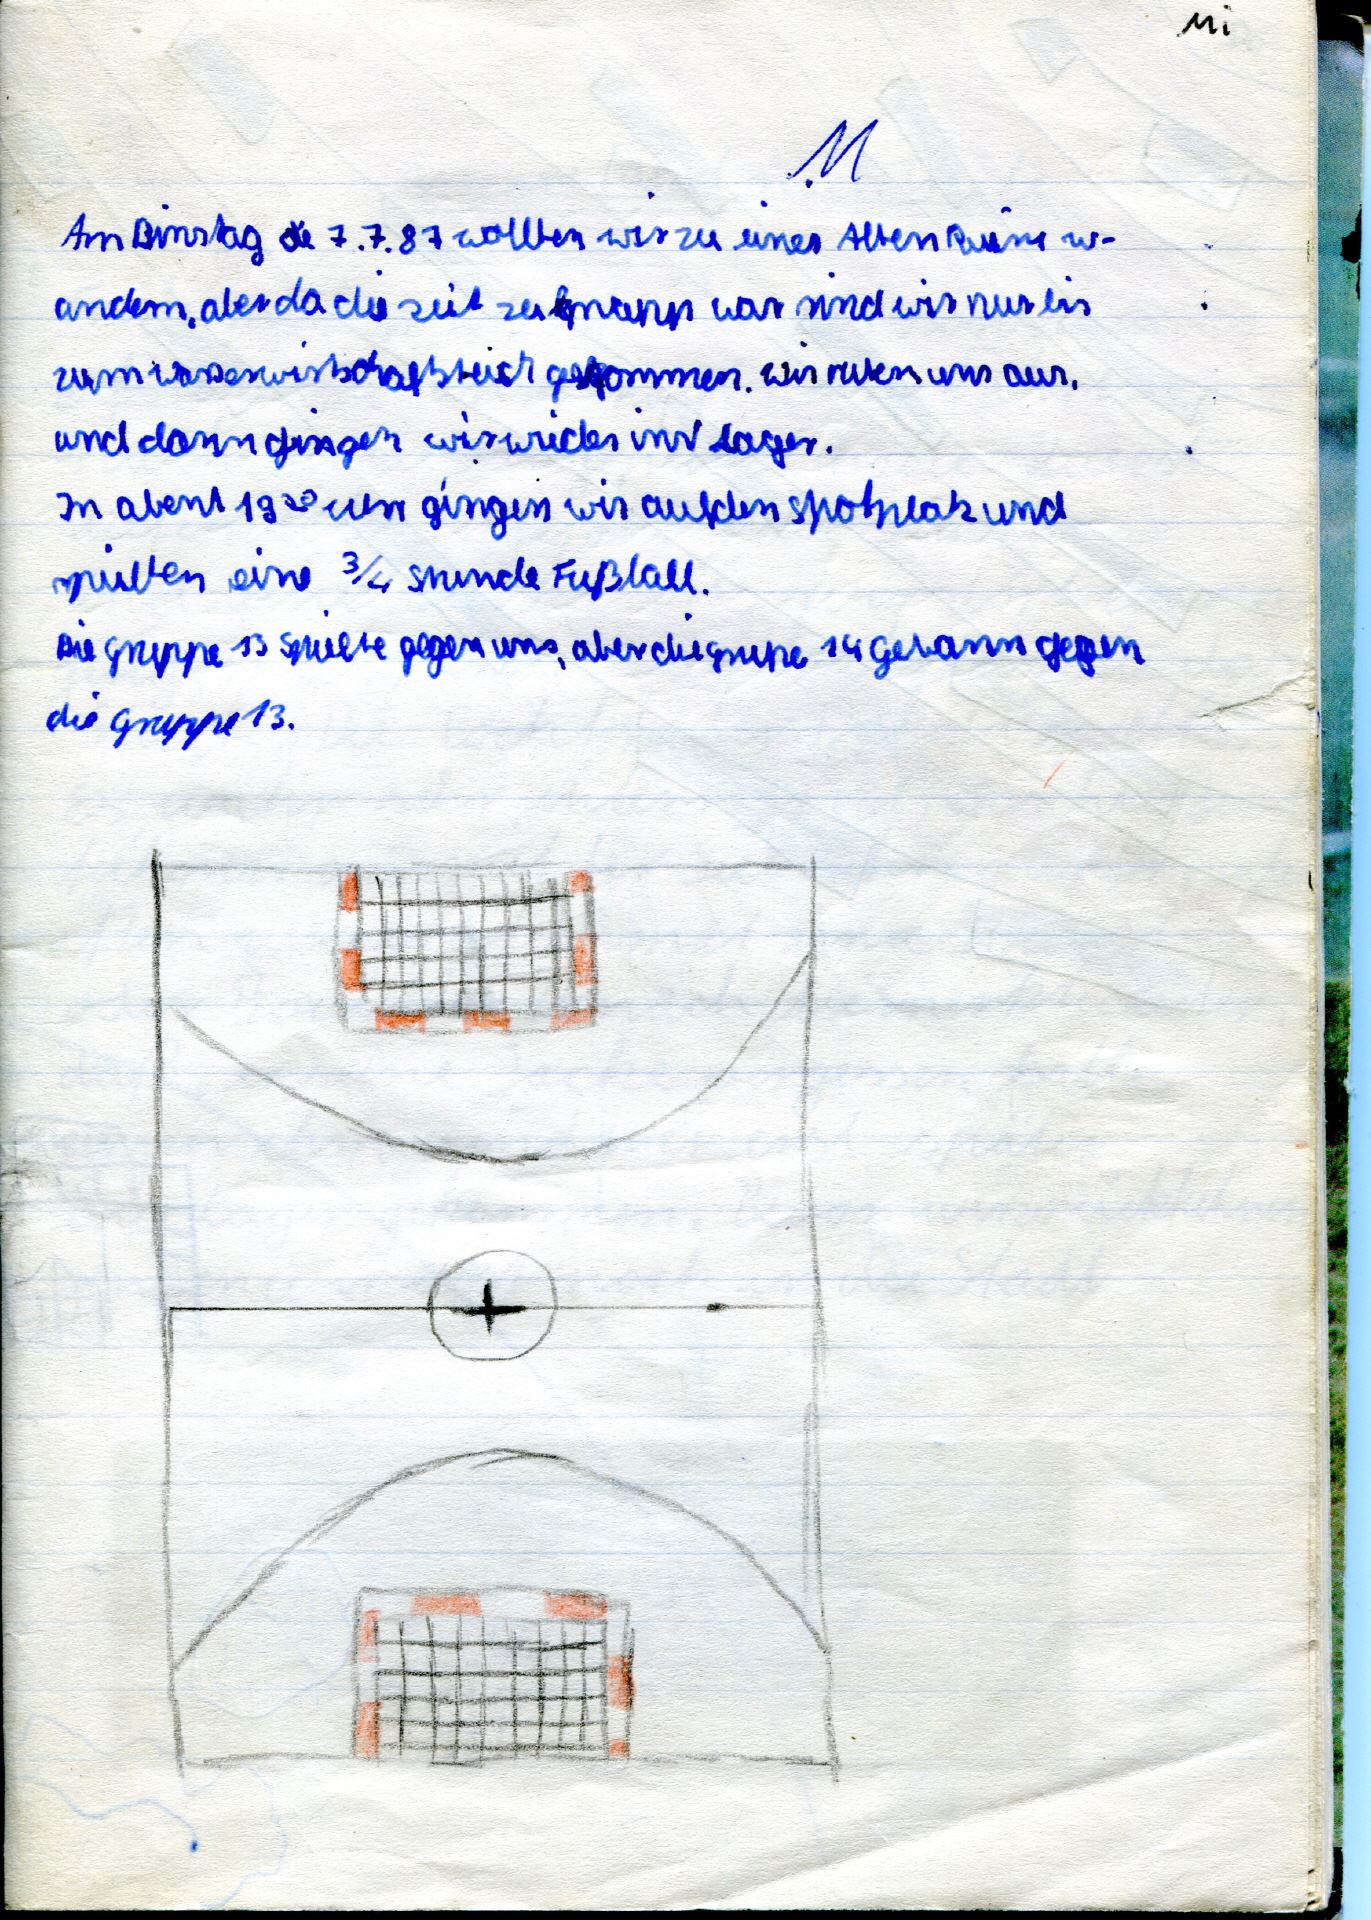 Mi
M
Am Dinstag de 7.7.87 wollten wir zu einer Alten Ruine w-
andern, aber da die zeit zu knapp war sind wir nur bis
zum wasserwirtschaftsteich gekommen. wir ruten uns aus,
und dann gingen wir wieder ins Lager.
In abent 19 30 uhr gingen wir auf den spotplatz und
spielten eine 3/4 stunde Fußball.
Die gruppe 13 spielte gegen uns, aber die grupe 14 gewann gegen
die gruppe 13.